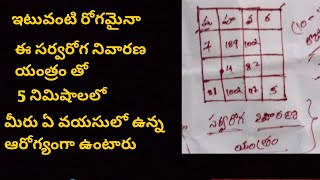 ఇటువంటి రోగమైనా
ఈ సర్వరోగ నివారణ
యంత్రం తో
5 నిమిషాలలో
మీరు ఏ వయసులో ఉన్న
ఆరోగ్యంగా ఉంటారు
7 189 1002
4 82
81 1002 5
సర్వరోగ నివారణ
యంత్రం